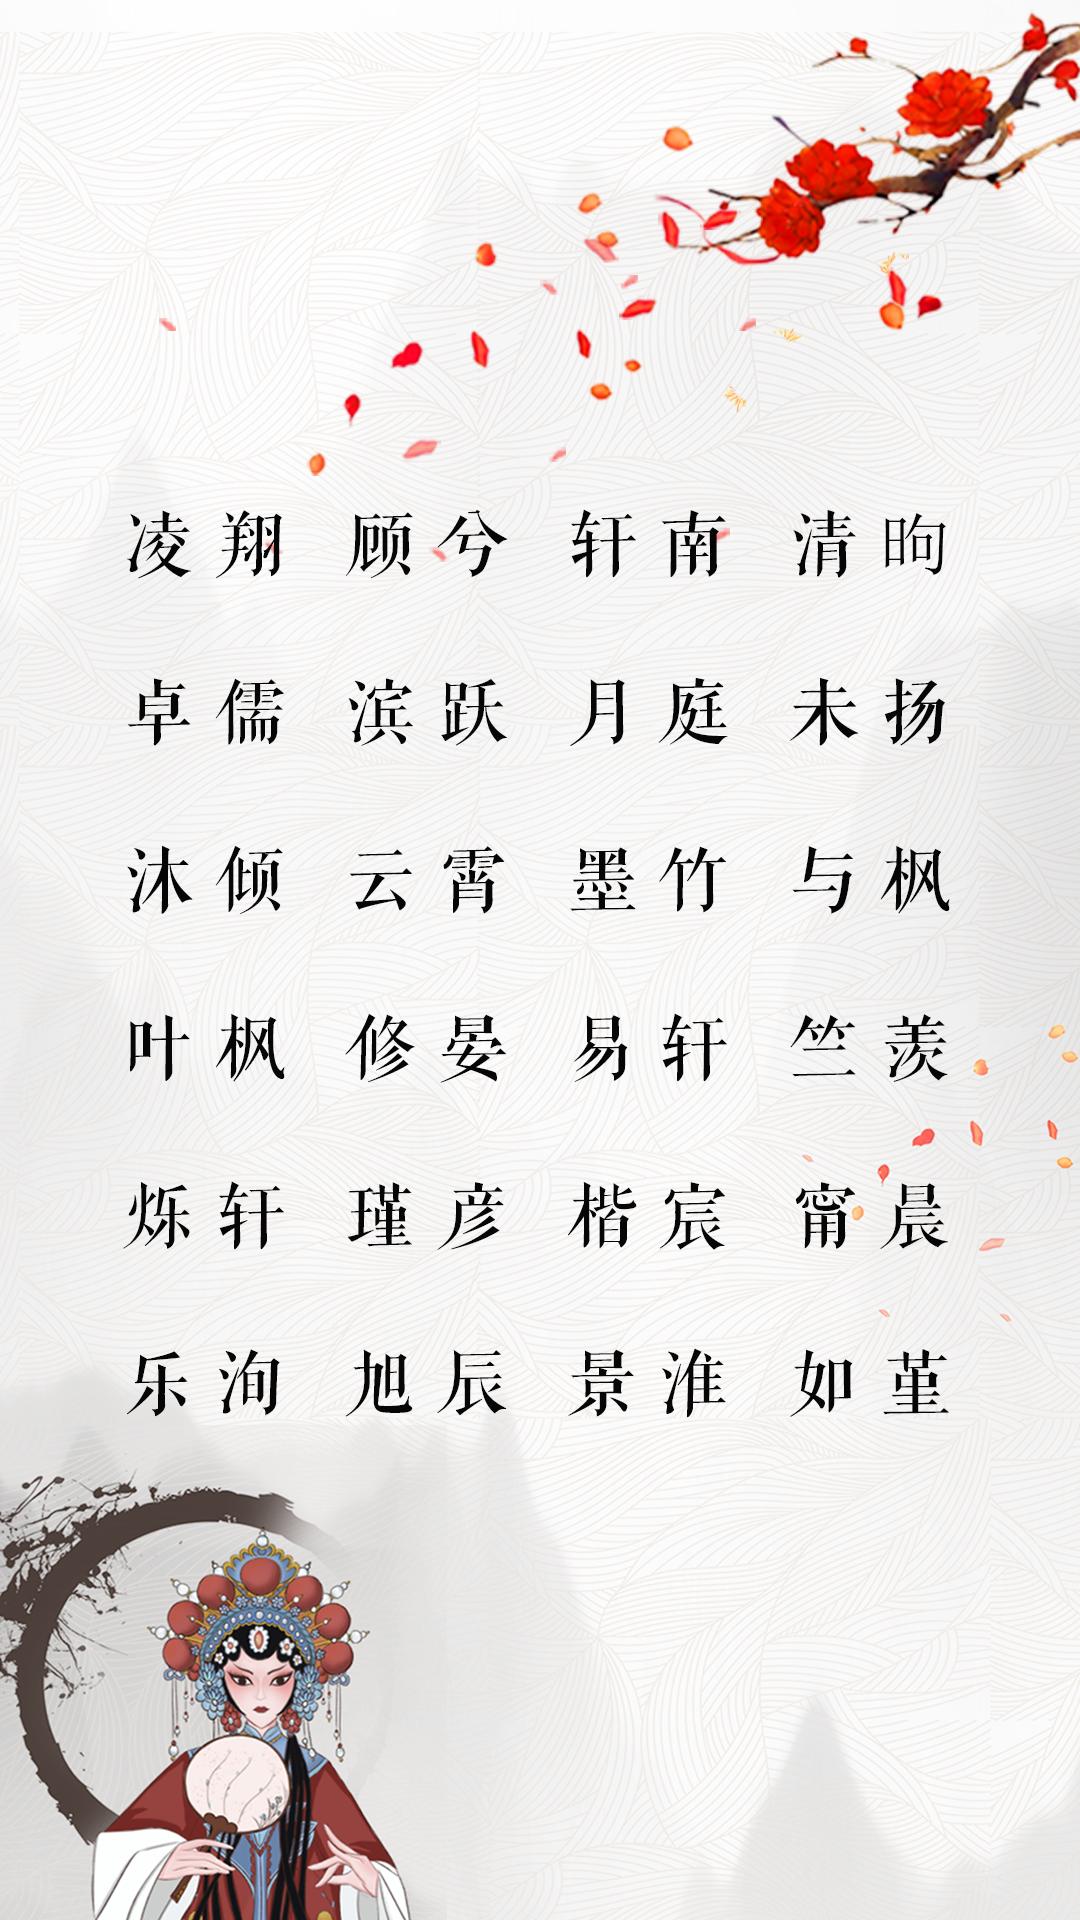 凌翔 顾兮 轩南 清昫
卓儒 滨跃 月庭 未扬
沐倾 云霄 墨竹 与枫
叶枫 修晏 易轩 竺羡
烁轩 瑾彦 楷宸 甯晨
乐洵 旭辰 景淮 如堇